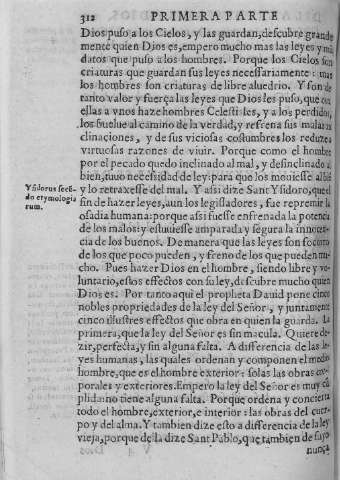 312 PRIMERA PARTE
Dios puso a los Cielos, y las guardan, descubre grande
mente quien Dios es, empero mucho mas las leyes y mã
datos que puso a los hombres. Porque los Cielos son
criaturas que guardan sus leyes necessariamente: mas
los hombres son criaturas de libre aluedrio. Y son de
tanto valor y fuerça las leyes que Dios les puso, que con
ellas a vnos haze hombres Celestiales, y a los perdidos,
los buelue al camino de la verdad, y refrena sus malas in
clinaciones, y de sus viciosas costumbres los reduze a
virtuosas razones de viuir. Porque como el hombre
por el pecado quedo inclinado al mal, y desinclinado al
bien, tuuo necessidad de ley: para que los mouiesse al biẽ
y lo retraxesse del mal. Y assi dize Sant Ysidoro, que el
sin de hazer leyes, aun los legisladores, fue repremir la
osadia humana: porque assi fuesse enfrenada la potencia
de los malos: y estuuiesse amparada y segura la innocẽ
cia de los buenos. De manera que las leyes son socorro
de los que poco pueden, y freno de los que pueden mu
cho. Pues hazer Dios en el hombre, siendo libre y vo-
luntario, estos effectos con su ley, descubre mucho quien
Dios es. Por tanto aqui el propheta Dauid pone cinco
nobles propriedades de la ley del Señor, y juntamente
cinco illustres effectos que obra en quien la guarda. La
primera, que la ley del Señor es sin macula. Quiere de-
zir, perfecta, y sin alguna falta. A differencia de las le-
yes humanas, las quales ordenan y componen el medio
hombre, que es el hombre exterior: solas las obras cor-
porales y exteriores. Empero la ley del Señor es muy cũ
plida no tiene alguna falta. Porque ordena y concierta
todo el hombre, exterior, e interior: las obras del cuer-
po y del alma. Y tambien dize esto a differencia de la ley
vieja, porque de la dize Sant Pablo, que tambien de suyo
nunca
Ysidorus secũ
do etymologia
rum.